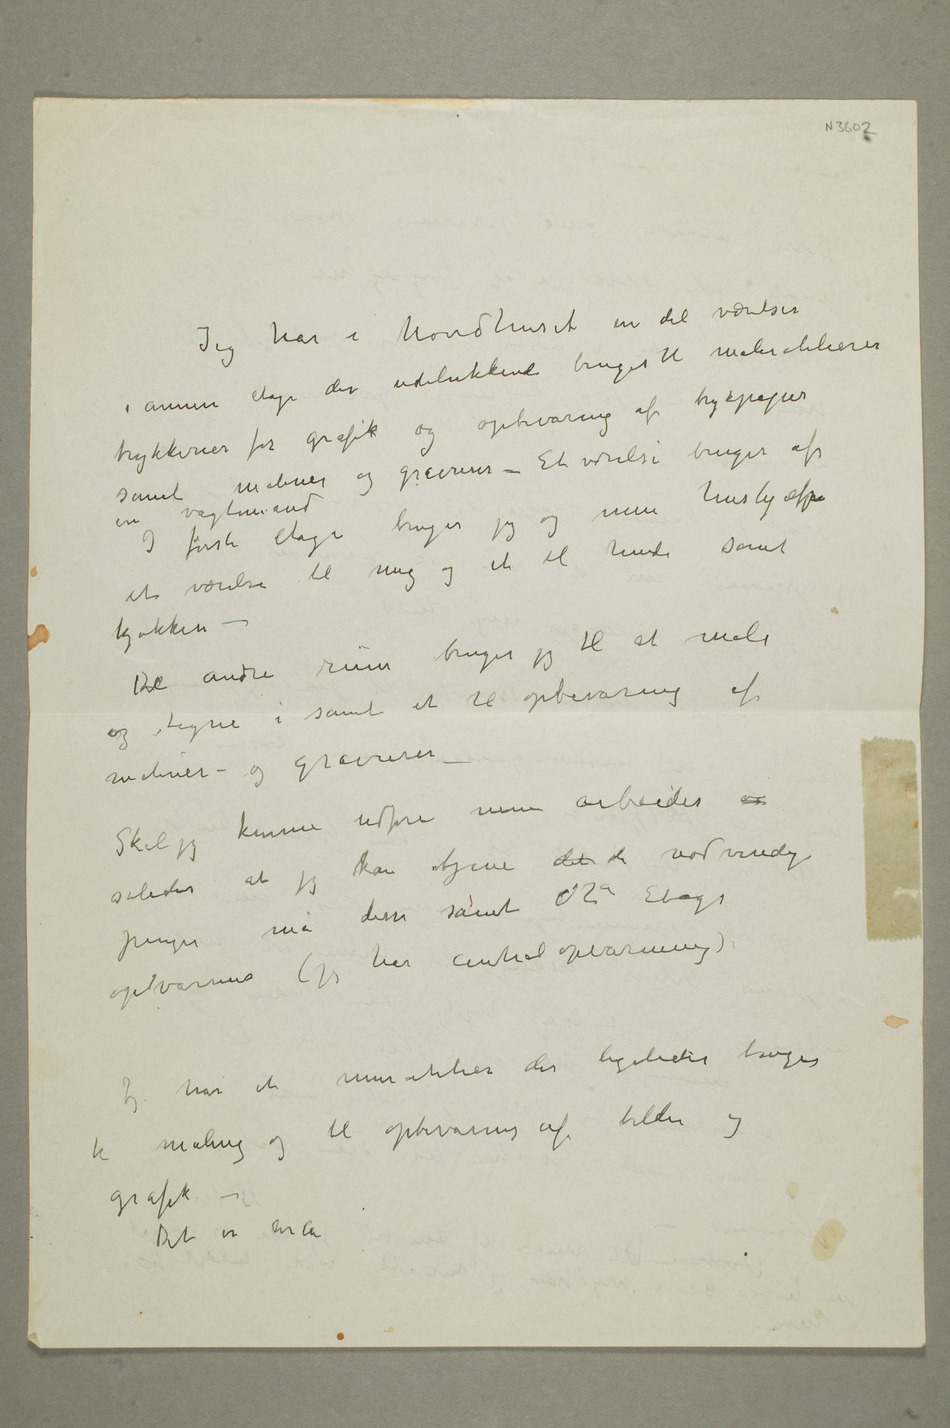 N 3602
Jeg har i Hovedhuset en del værelser
i annen etage der udelukkende bruges til maleratelierer
trykkerier for grafik og opbevaring af trykpapir
samt malerier og gravurer – Et værelse bruges af
en vagtmand
I første etage bruger jeg og min hushjælp
et værelse til mig og et til hende samt
kjøkken –
De andre rum bruger jeg til at male
og tegne i samt et til opbevaring af
malerier – og gravurer –
Skal jeg kunne udføre mine arbeider
således at jeg kan tjene det de nødvendige
penger må disse samt 2n Etage
opvarmes (Jeg har centralopvarmning)
Jeg har et muratelier der ligeledes bruges
til maling og til opbevaring af billeder og
grafik –
Det er